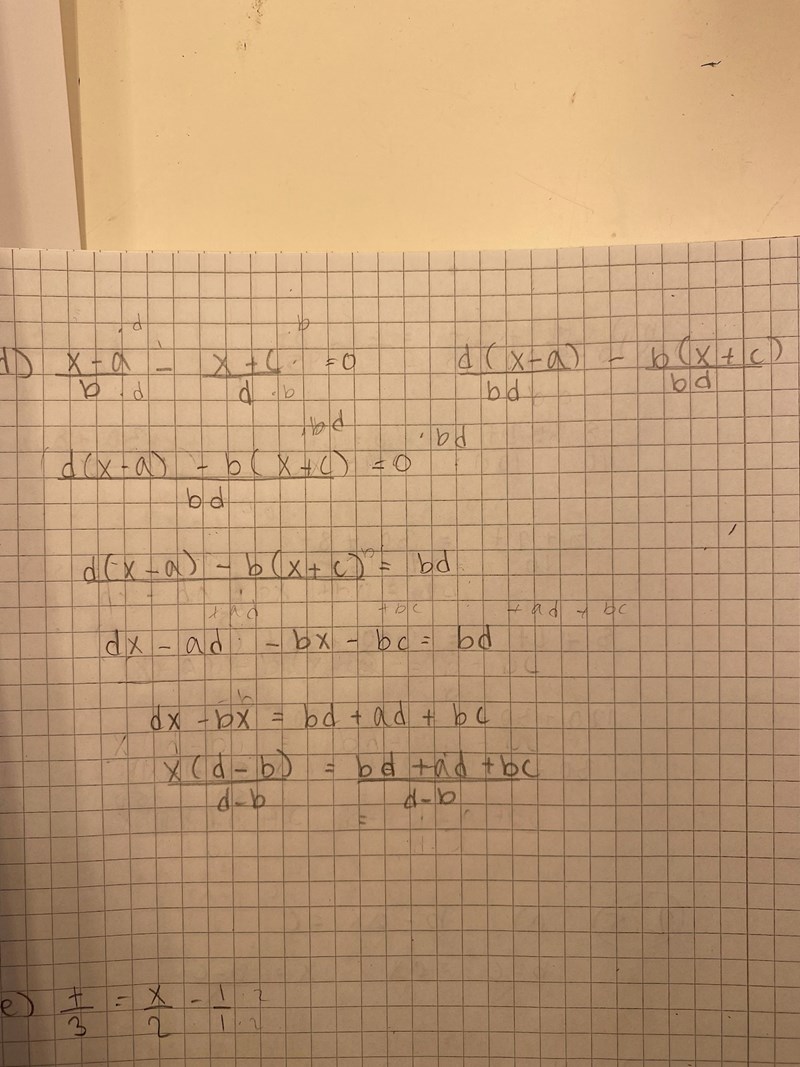 d) x-a/b · d/d - x+c/d · b/b =0    d(x-a)/bd - b(x+c)/bd
·bd ·bd
d(x-a) - b(x+c)/bd =0
d(x-a) - b(x+c) = bd
+ad +bc +ad + bc
dx - ad - bx - bc = bd
dx -bx = bd + ad + bc
x(d-b)/d-b = bd +ad +bc/d-b
=
e) t/3 = x/2 - 1/1 · 2/2